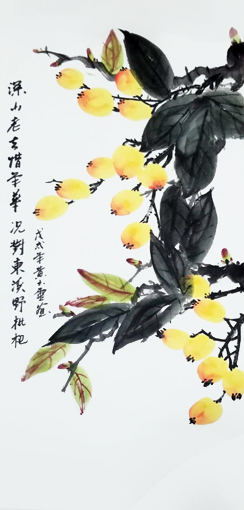 深山老去惜年華況對東溪野枇杷
戊戌年黃